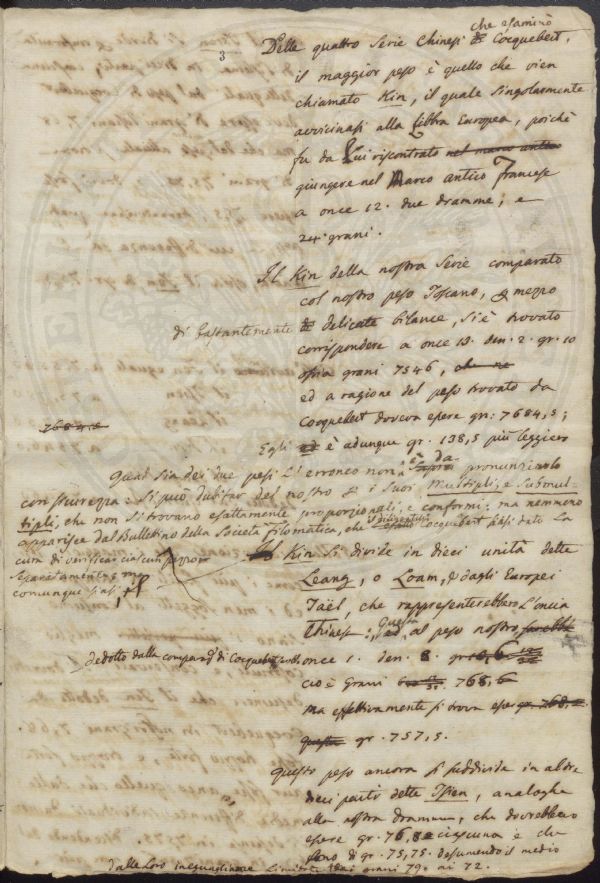 3
che esaminò
Delle quattro Serie Chinesi Cocquebert,
il maggior peso è quello che vien
chiamato Kin, il quale singolarmente
avvicinasi alla Libbra Europea, poichè
fu da Lui riscontrato nel marco antico
giungere nel Marco antico Francese
a once 12. due dramme, e
24. grani.
Il Kin della nostra Serie comparato
col nostro peso Toscano, a mezzo
di bastantemente
delicate bilance, si è trovato
corrispondere a once 13. den. 2. gr. 10
ossia grani 7546,
ed a ragione del peso trovato da
7684,5
Cocquebert doveva essere gn: 7684,5;
Egli è adunque gr. 138,5 più leggiero
Qual sia dei due pesi l'erroneo non è da pronunziarlo
con sicurezza: si può dubitar del nostro i suoi Multipli, e Submul-
tipli, che non si trovano esattamente proporzionali, e conformi: ma nemmeno
apparisce dal Bullettino della Società filomatica, che Cocquebert siasi dato la
cura di verificar ciascun peso
separatamente; ma
comunque siasi,
Il Kin si divide in dieci unità dette
Leang, o Loam, e dagli Europei
Taël, che rappresenterebbero l'oncia
Chinese; al peso nostro sarebbe
dedotto dalla compar. di Cocquebert
once 1. den. 8.
cioè grani 768,6
ma effettivamente si trova
questa gr. 757,5.
Questo peso ancora si suddivide in altre
dieci parti dette Tsien, analoghe
alla nostra dramma, che dovrebbero
essere gr. 76,8 ciascuna e che
sono di gr. 75,75. desumendo il medio
dalle loro inequaglianze grani 79. ai 72.